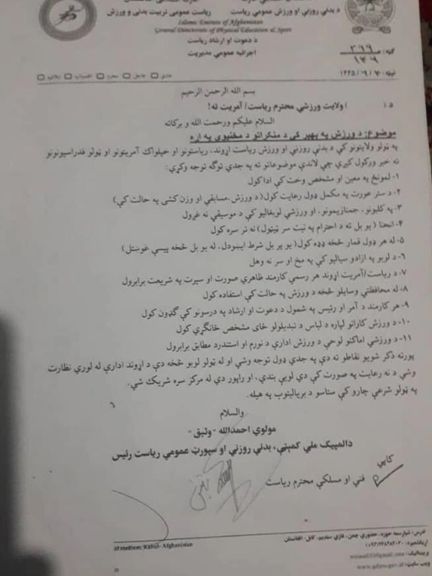 د بدني روزنې او ورزش عمومي ریاست
ریاست عمومی تربیت بدنی و ورزش
Islamic Emirate of Afghanistan
General Directorate of Physical Education & Sport
د دعوت او ارشاد ریاست
اجرائیه عمومي مدیریت
بسم الله الرحمن الرحیم
د ولایت ورزشي محترم ریاست/ آمریت ته!
السلام علیکم ورحمت الله و برکاته
موضوع: د ورزش په بهیر کې د منکراتو د مخنیوي په اړه
په ټولو ولایتونو کې د بدني روزنې او ورزش ریاست اړوند، ریاستونو او خپلواک آمریتونو او ټولو فدراسیونونو
ته خبر ورکول کیږي چې لاندې موضوعاتو ته په جدي توګه توجه وکړي:
۱- لمونځ په معین او مشخص وخت کې ادا کول
۲- د ستر عورت په مکمل ډول رعایت کول (د ورزش، مسابقې او وزن کشۍ په حالت کې)
۳- په کلبونو، جمنازیمونو، او ورزشي لوبغالیو کې د موسیقي نه غږول
۴- انحنا (یو بل ته د احترام په نیت سر ټیټول) نه تر سره کول
۵- له هر ډول قمار څخه ډډه کول (یو پر بل شرط ایښودل، له یو بل څخه پیسې غوښتل)
۶- د لوبو په ازادو سیالیو کې په مخ او سر نه وهل
۷- د ریاست/آمریت اړوند هر رسمي کارمند ظاهري صورت او سیرت په شریعت برابرول
۸- له محافظتي وسایلو څخه د ورزش په حالت کې استفاده کول
۹- هر کارمند د آمر او رئیس په شمول د دعوت او ارشاد په درسونو کې ګډون کول
۱۰- د ورزش کارانو لپاره د لباس د تبدیلولو ځای مشخص ځانګړی کول
۱۱- د ورزشي اماکنو لوحې د ورزش ادارې د نورم او استندرد مطابق برابرول
پورته ذکر شویو نقاطو ته دې په جدي ډول توجه وشي او له ټولو لوبو څخه دې د اړوند ادارې له لوري نظارت
وشي د نه رعایت په صورت کې دې لوبې بندې، او راپور دې له مرکز سره شریک شي.
په ټولو شرعي چارو کې ستاسو د بریالیتوب په هیله.
والسلام
مولوي احمدالله «وثیق»
دالمپیک ملي کمېټې، بدني روزنې او سپورټ عمومي ریاست رئیس
کاپي
فني او مسلکي محترم ریاست